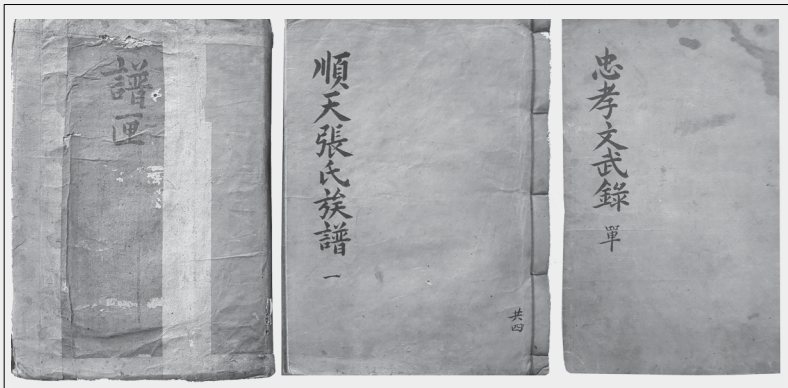 譜匣
順天張氏族譜 一
共四
忠孝文武錄 單